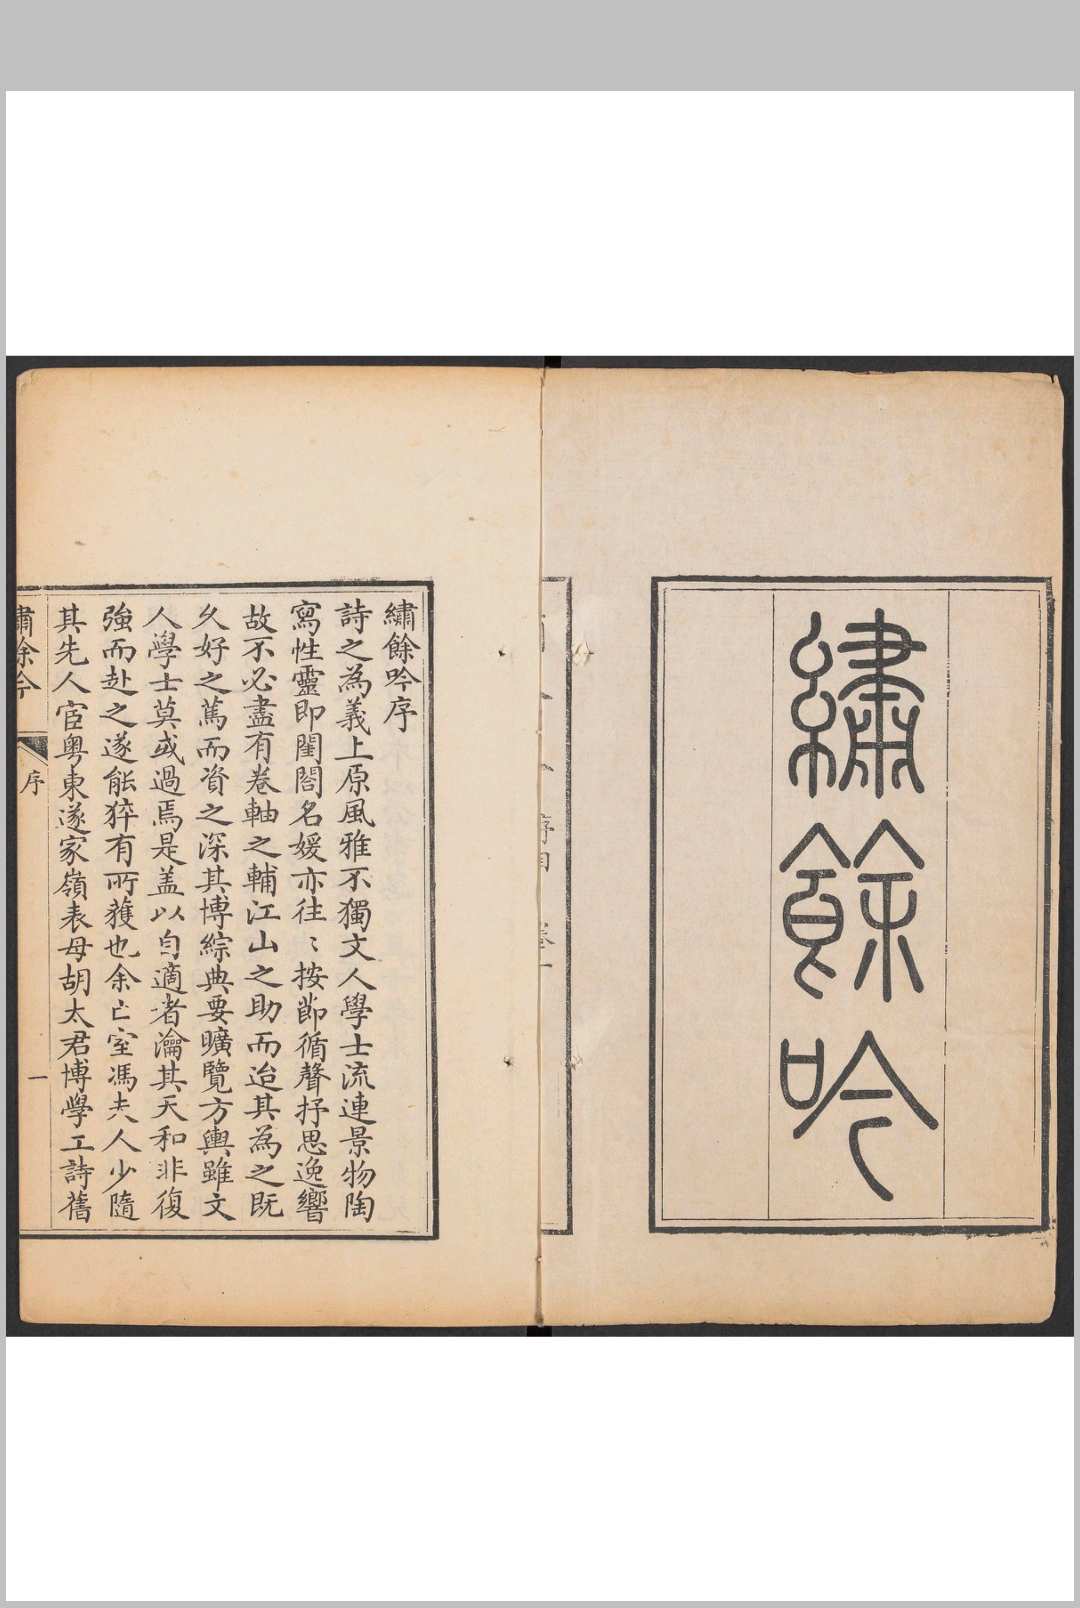 繡餘吟
繡餘吟序
詩之為義上原風雅不獨文人學士流連景物陶
寫性靈即閨閤名媛亦往〻按節循聲抒思逸響
故不必盡有卷軸之輔江山之助而迨其為之既
久好之篤而資之深其博綜典要曠覽方輿雖文
人學士莫或過焉是盖以自適者瀹其天和非復
強而赴之遂能猝有所獲也余亡室馮夫人少隨
其先人宦粤東遂家嶺表母胡太君博學工詩舊
繡餘吟
序
一